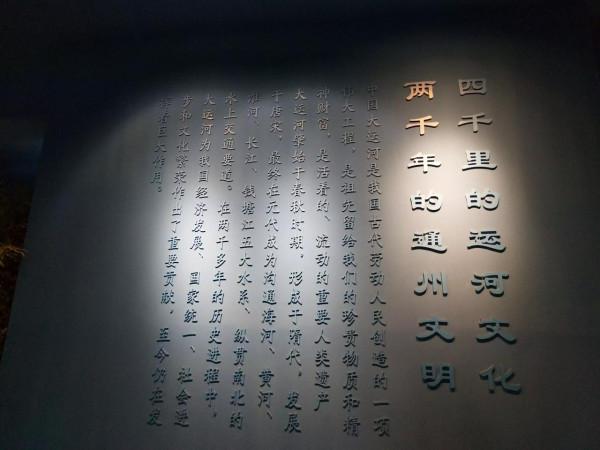 四千里的运河文化
两千年的通州文明
中国大运河是我国古代劳动人民创造的一项
伟大工程，是祖先留给我们的珍贵物质和精
神财富，是活着的、流动的重要人类遗产
大运河肇始于春秋时期，形成于隋代，发展
于唐宋，最终在元代成为沟通海河、黄河、
淮河、长江、钱塘江五大水系、纵贯南北的
水上交通要道。在两千多年的历史进程中，
大运河为我国经济发展、国家统一、社会进
步和文化繁荣作出了重要贡献，至今仍在发
挥着巨大作用。